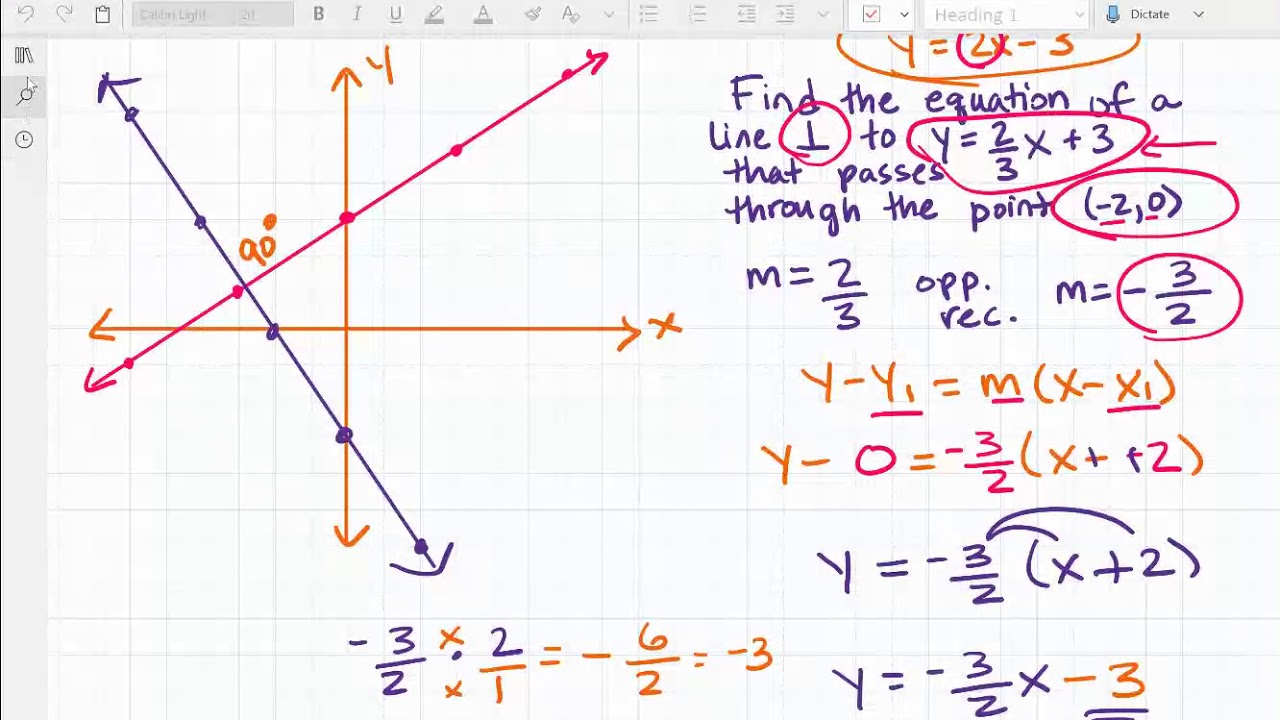 Calibri Light 20 B I U A A Heading 1 Dictate
y = 2x - 3
Find the equation of a
line ⊥ to y = 2/3 x + 3
that passes
through the point (-2,0)
m = 2/3 opp. rec. m = - 3/2
y - y₁ = m(x - x₁)
y - 0 = -3/2 (x + +2)
y = -3/2 (x + 2)
y = -3/2 x - 3
y
90°
x
-3/2 · 2/1 = - 6/2 = -3
x
x